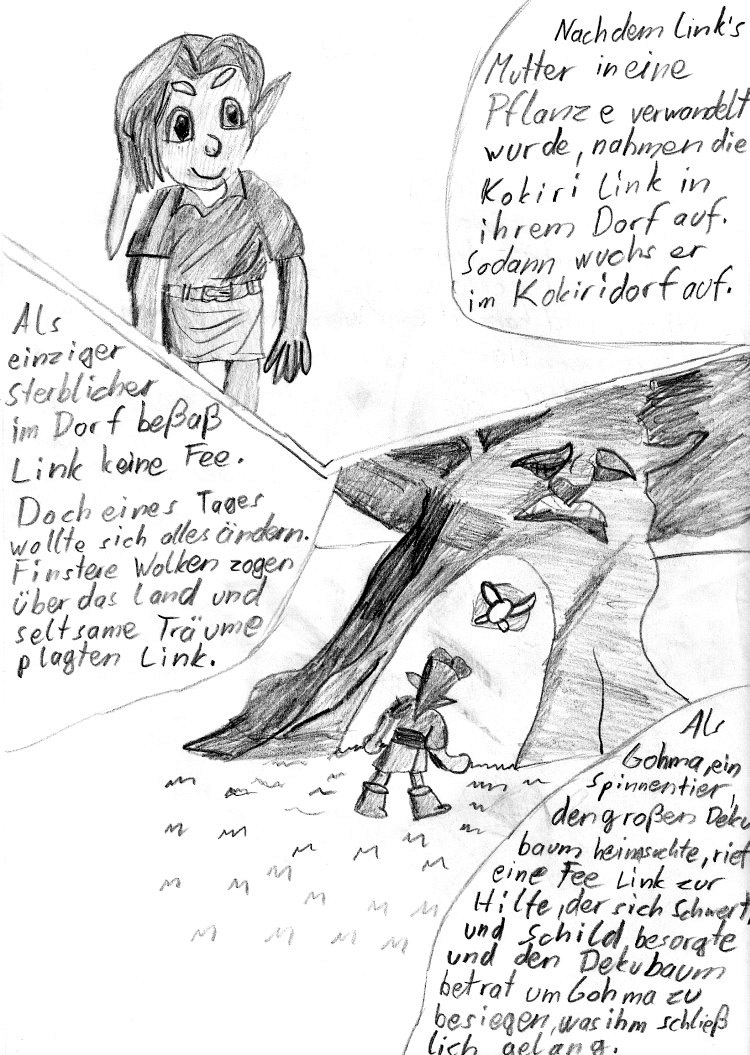 Nachdem Link's
Mutter in eine
Pflanze verwandelt
wurde, nahmen die
Kokiri Link in
ihrem Dorf auf.
Sodann wuchs er
im Kokiridorf auf.
Als
einziger
Sterblicher
im Dorf beßaß
Link keine Fee.
Doch eines Tages
wollte sich alles ändern.
Finstere Wolken zogen
über das Land und
seltsame Träume
plagten Link.
Als
Gohma, ein
Spinnentier,
den großen Deku
baum heimsuchte, rief
eine Fee Link zur
Hilfe, der sich Schwert,
und Schild besorgte
und den Dekubaum
betrat um Gohma zu
besiegen, was ihm schließ
lich gelang.